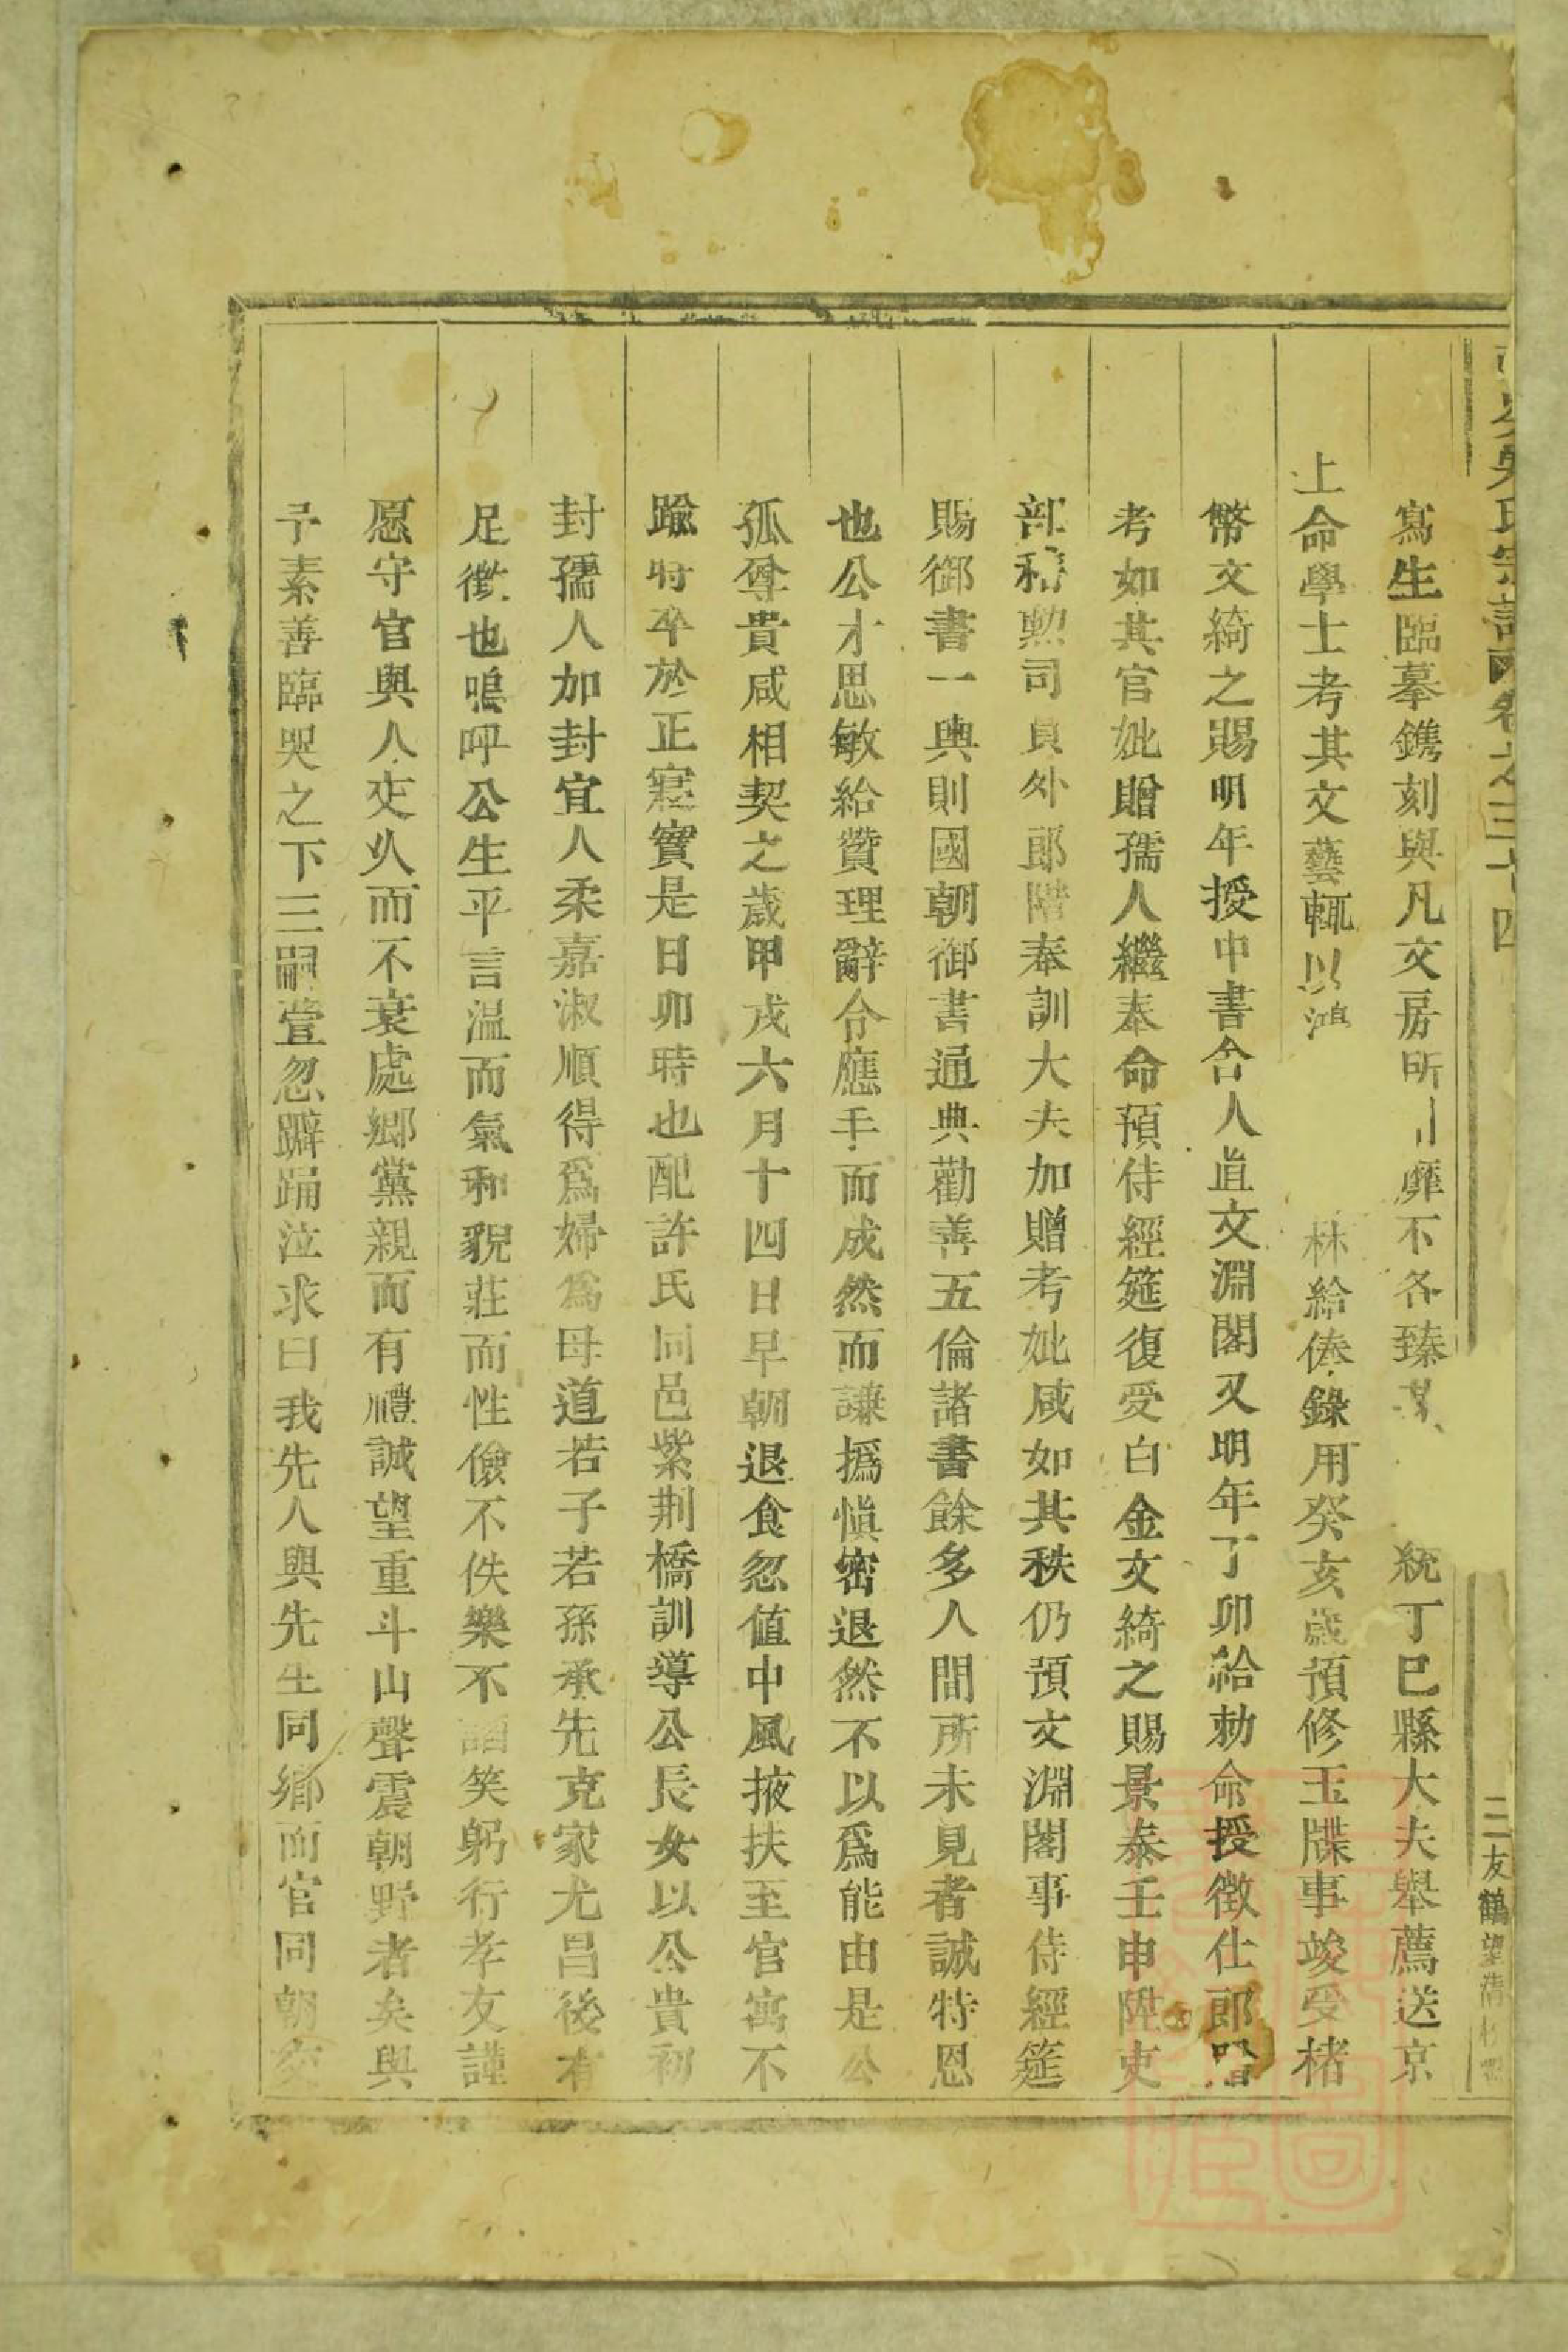 寫生臨摹鐫刻與凡文房所靡不各臻統丁巳縣大夫舉薦送京
上命學士考其文藝輒以鴻林給俸錄用癸亥歲預修玉牒事竣受楮
幣文綺之賜明年授中書舍人直文淵閣又明年丁卯給勅命授徵仕郎
考如其官妣贈孺人繼奉命預侍經筵復受白金文綺之賜景泰壬申陞吏
部稽勲司員外郎階奉訓大夫加贈考妣咸如其秩仍預文淵閣事侍經筵
賜御書一與則國朝御書通典勸善五倫諸書餘多人間所未見者誠特恩
也公才思敏給贊理辭令應手而成然而謙撝慎密退然不以爲能由是公
孤尊貴咸相契之歲甲戌六月十四日早朝退食忽值中風掖扶至官寓不
踰時卒於正寢實是日卯時也配許氏同邑紫荆橋訓導公長女以公貴初
封孺人加封宜人柔嘉淑順得爲婦爲母道若子若孫承先克家尤昌後有
足徵也嗚呼公生平言温而氣和貌莊而性儉不佚樂不謟笑躬行孝友謹
愿守官與人交久而不衰處鄉黨親而有禮誠望重斗山聲震朝野者矣與
予素善臨哭之下三嗣萱忽躃踊泣求曰我先人與先生同鄉而官同朝交
吳氏宗譜卷之三十四
三友鶴望清